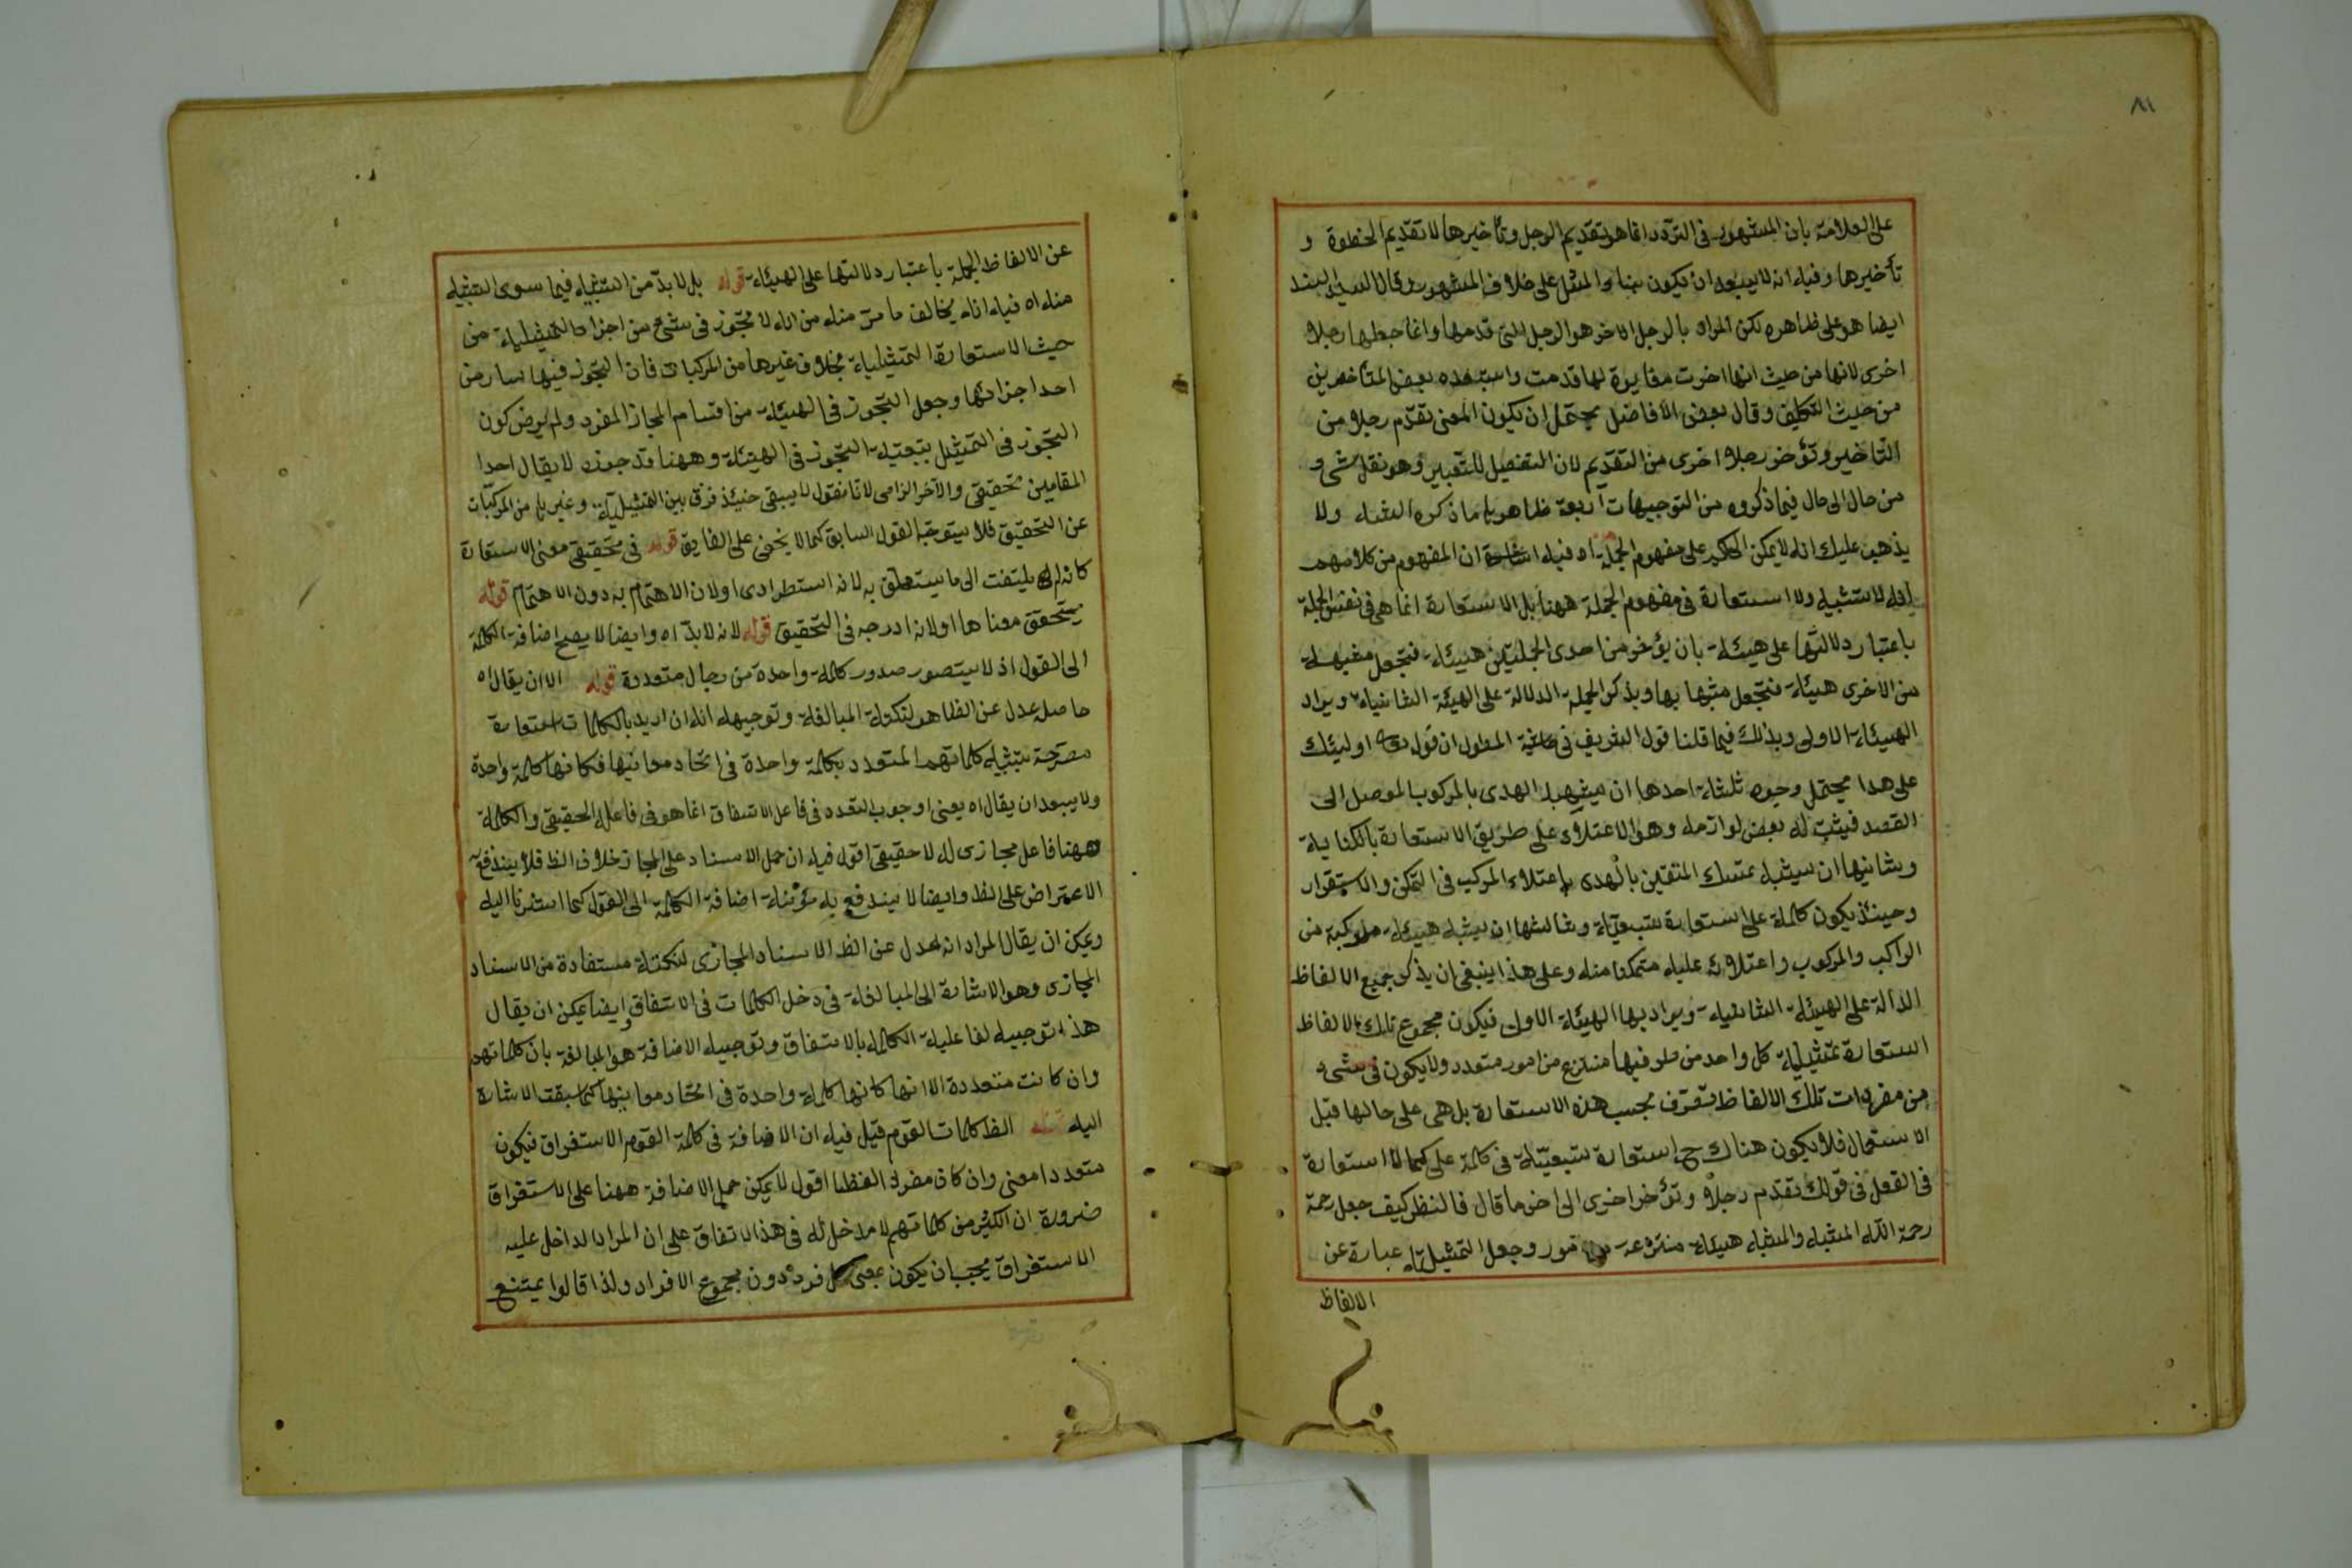 ٨١
على العلامة بان المشهور فى التردد انما هو تقديم الرجل وتأخيرها لا تقديم الخطوة و
تأخيرها وفيه انه لا يبعد ان يكون بناء المثل على خلاف المشهور قال السيد السند
ايضا هو على ظاهره لكن المراد بالرجل الاخر هو الرجل التى قدمها وانما جعلها رجلا
اخرى لانها من حيث انها اخرت مغايرة لها قدمت واستبعده بعض المتأخرين
من حيث التكلف وقال بعض الافاضل يحتمل ان يكون المعنى تقدم رجلا من
التأخير وتؤخر رجلا اخرى من التقديم لان التفصيل للتعبير وهو نقل شىء
من حال الى حال فيما ذكروه من التوجيهات اربعة ظاهرها ما ذكره الشاء ولا
يذهب عليك انه لا يمكن الحكم على مفهوم الجملة اه وفيه اشارة ان المفهوم من كلامهم
انه لا تشبيه ولا استعارة فى مفهوم الجملة ههنا بل الاستعارة انما هى فى نفس الجملة
باعتبار دلالتها على هيئة بان يؤخذ من احدى الجملتين هيئة فتجعل مشبهة
من الاخرى هيئة فتجعل مشبها بها ويذكر الجملة الدلالة على الهيئة الثانية ويراد
الهيئة الاولى وبذلك فيما قلنا قول الشريف فى حاشية المطول ان قوله تعالى اولئك
على هدا يحتمل وجوه ثلثة احدها ان يشبه الهدى بالمركوب الموصل الى
القصد فيثبت له بعض لوازمه وهو الاعتلاء على طريق الاستعارة بالكناية
وثانيها ان يشبه تمسك المتقين بالهدى باعتلاء المركب فى التمكن والاستقرار
وحينئذ يكون كلمة على استعارة تبعية وثالثها ان يشبه هيئة مركبة من
الراكب والمركوب واعتلائه عليه متمكنا منه وعلى هذا ينبغى ان يذكر جميع الالفاظ
الدالة على الهيئة الثانية ويراد بها الهيئة الاولى فيكون مجموع تلك الالفاظ
استعارة تمثيلية كل واحد من طرفيها منتزع من امور متعدد ولا يكون فى شىء
من مفردات تلك الالفاظ تصرف بحسب هذه الاستعارة بل هى على حالها قبل
الاستعمال فلا يكون هناك ح استعارة تبعية فى كلمة على كما لا استعارة
فى الفعل فى قولك تقدم رجلا وتؤخر اخرى الى اخر ما قال فانظر كيف جعل رحمة
رحمة الله المشبه والمشبه هيئة منتزعة من امور وجعل التمثيلية عبارة عن
الالفاظ
عن الالفاظ الجملة باعتبار دلالتها على الهيئة قوله بل لا بد من التشبيه فيما سوى التشبيه
منه اه فيه انه يخالف ما مر منه من انه لا تجوز فى شىء من اجزاء التمثيلية من
حيث الاستعارة التمثيلية بخلاف غيرها من المركبات فان التجوز فيها سار من
احد اجزائها وجعل التجوز فى الهيئة من اقسام المجاز المفرد ولم يرض كون
التجوز فى التمثيل بتبعية التجوز فى الهيئة وههنا قد جوزه لا يقال احدا
المقامين تحقيقى والآخر الزامى لانا نقول لا يبقى حينئذ فرق بين التمثيلية وغيرها من المركبات
عن التحقيق فلا يتوجه القول السابق كما لا يخفى على الفايق قوله فى تحقيق معنى الاستعارة
كانه لم يلتفت الى ما يتعلق به لانه استطرادى اولان الاهتمام به دون الاهتمام قوله
يتحقق معناها اولانه ادرجه فى التحقيق قوله لانه لا بد اه وايضا لا يصح اضافة الكلمة
الى القول اذ لا يتصور صدور كلمة واحدة من رجال متعددة قوله الا ان يقال اه
حاصله عدل عن الظاهر لنكتة المبالغة وتوجيهه انه ان اريد بالكلمات استعارة
مصرحة بتشبيه كلماتهم المتعدد بكلمة واحدة فى اتحاد معانيها فكانها كلمة واحدة
ولا يبعد ان يقال اه يعنى اوجوب التعدد فى فاعل الاتفاق انما هو فى فاعله الحقيقى والكلمة
ههنا فاعل مجازى له لا حقيقى اقول فيه ان حمل الاسناد على المجاز خلاف الظ فلا يندفع
الاعتراض على الظ وايضا لا يندفع به مؤنة اضافة الكلمة الى القول كما اشرنا اليه
ويمكن ان يقال المراد انه عدل عن الظ الاسناد المجازى لنكتة مستفادة من الاسناد
المجازى وهو الاشارة الى المبالغة فى دخل الكلمات فى الاتفاق وايضا يمكن ان يقال
هذا توجيه لفاعلية الكلمة بالاتفاق وتوجيه الاضافة هو المبالغة بان كلماتهم
وان كانت متعددة الا انها كانها كلمة واحدة فى اتحاد معانيها كما سبقت الاشارة
اليه قوله الظ كلمات القوم قيل فيه ان الاضافة فى كلمة القوم الاستغراق فيكون
متعددا معنى وان كان مفرد الفظا اقول لا يمكن حمل الاضافة ههنا على الاستغراق
ضرورة ان الكثير من كلماتهم لا مدخل له فى هذا الاتفاق على ان المراد الداخل عليه
الاستغراق يجب ان يكون بمعنى كل فرد دون مجموع الافراد ولذا قالوا يمتنع